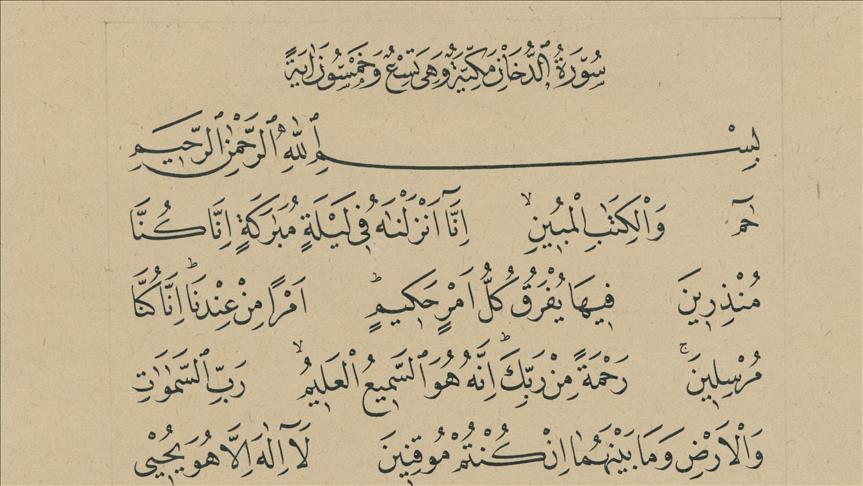 سُورَةُ الدُّخَانِ مَكِّيَّةٌ وَهِيَ تِسْعٌ وَخَمْسُونَ اٰيَةً
بِسْمِ اللّٰهِ الرَّحْمٰنِ الرَّحِيمِ
حٰمٓ وَالْكِتَابِ الْمُبِينِۙ اِنَّٓا اَنْزَلْنَاهُ فِى لَيْلَةٍ مُبَارَكَةٍ اِنَّا كُنَّا
مُنْذِرِينَ فِيهَا يُفْرَقُ كُلُّ اَمْرٍ حَكِيمٍۜ اَمْرًا مِنْ عِنْدِنَاۜ اِنَّا كُنَّا
مُرْسِلِينَۚ رَحْمَةً مِنْ رَبِّكَۜ اِنَّهُ هُوَ السَّمِيعُ الْعَلِيمُۙ رَبِّ السَّمٰوَاتِ
وَالْاَرْضِ وَمَا بَيْنَهُمَا اِنْ كُنْتُمْ مُوقِنِينَ لَٓا اِلٰهَ اِلَّا هُوَ يُحْيِى